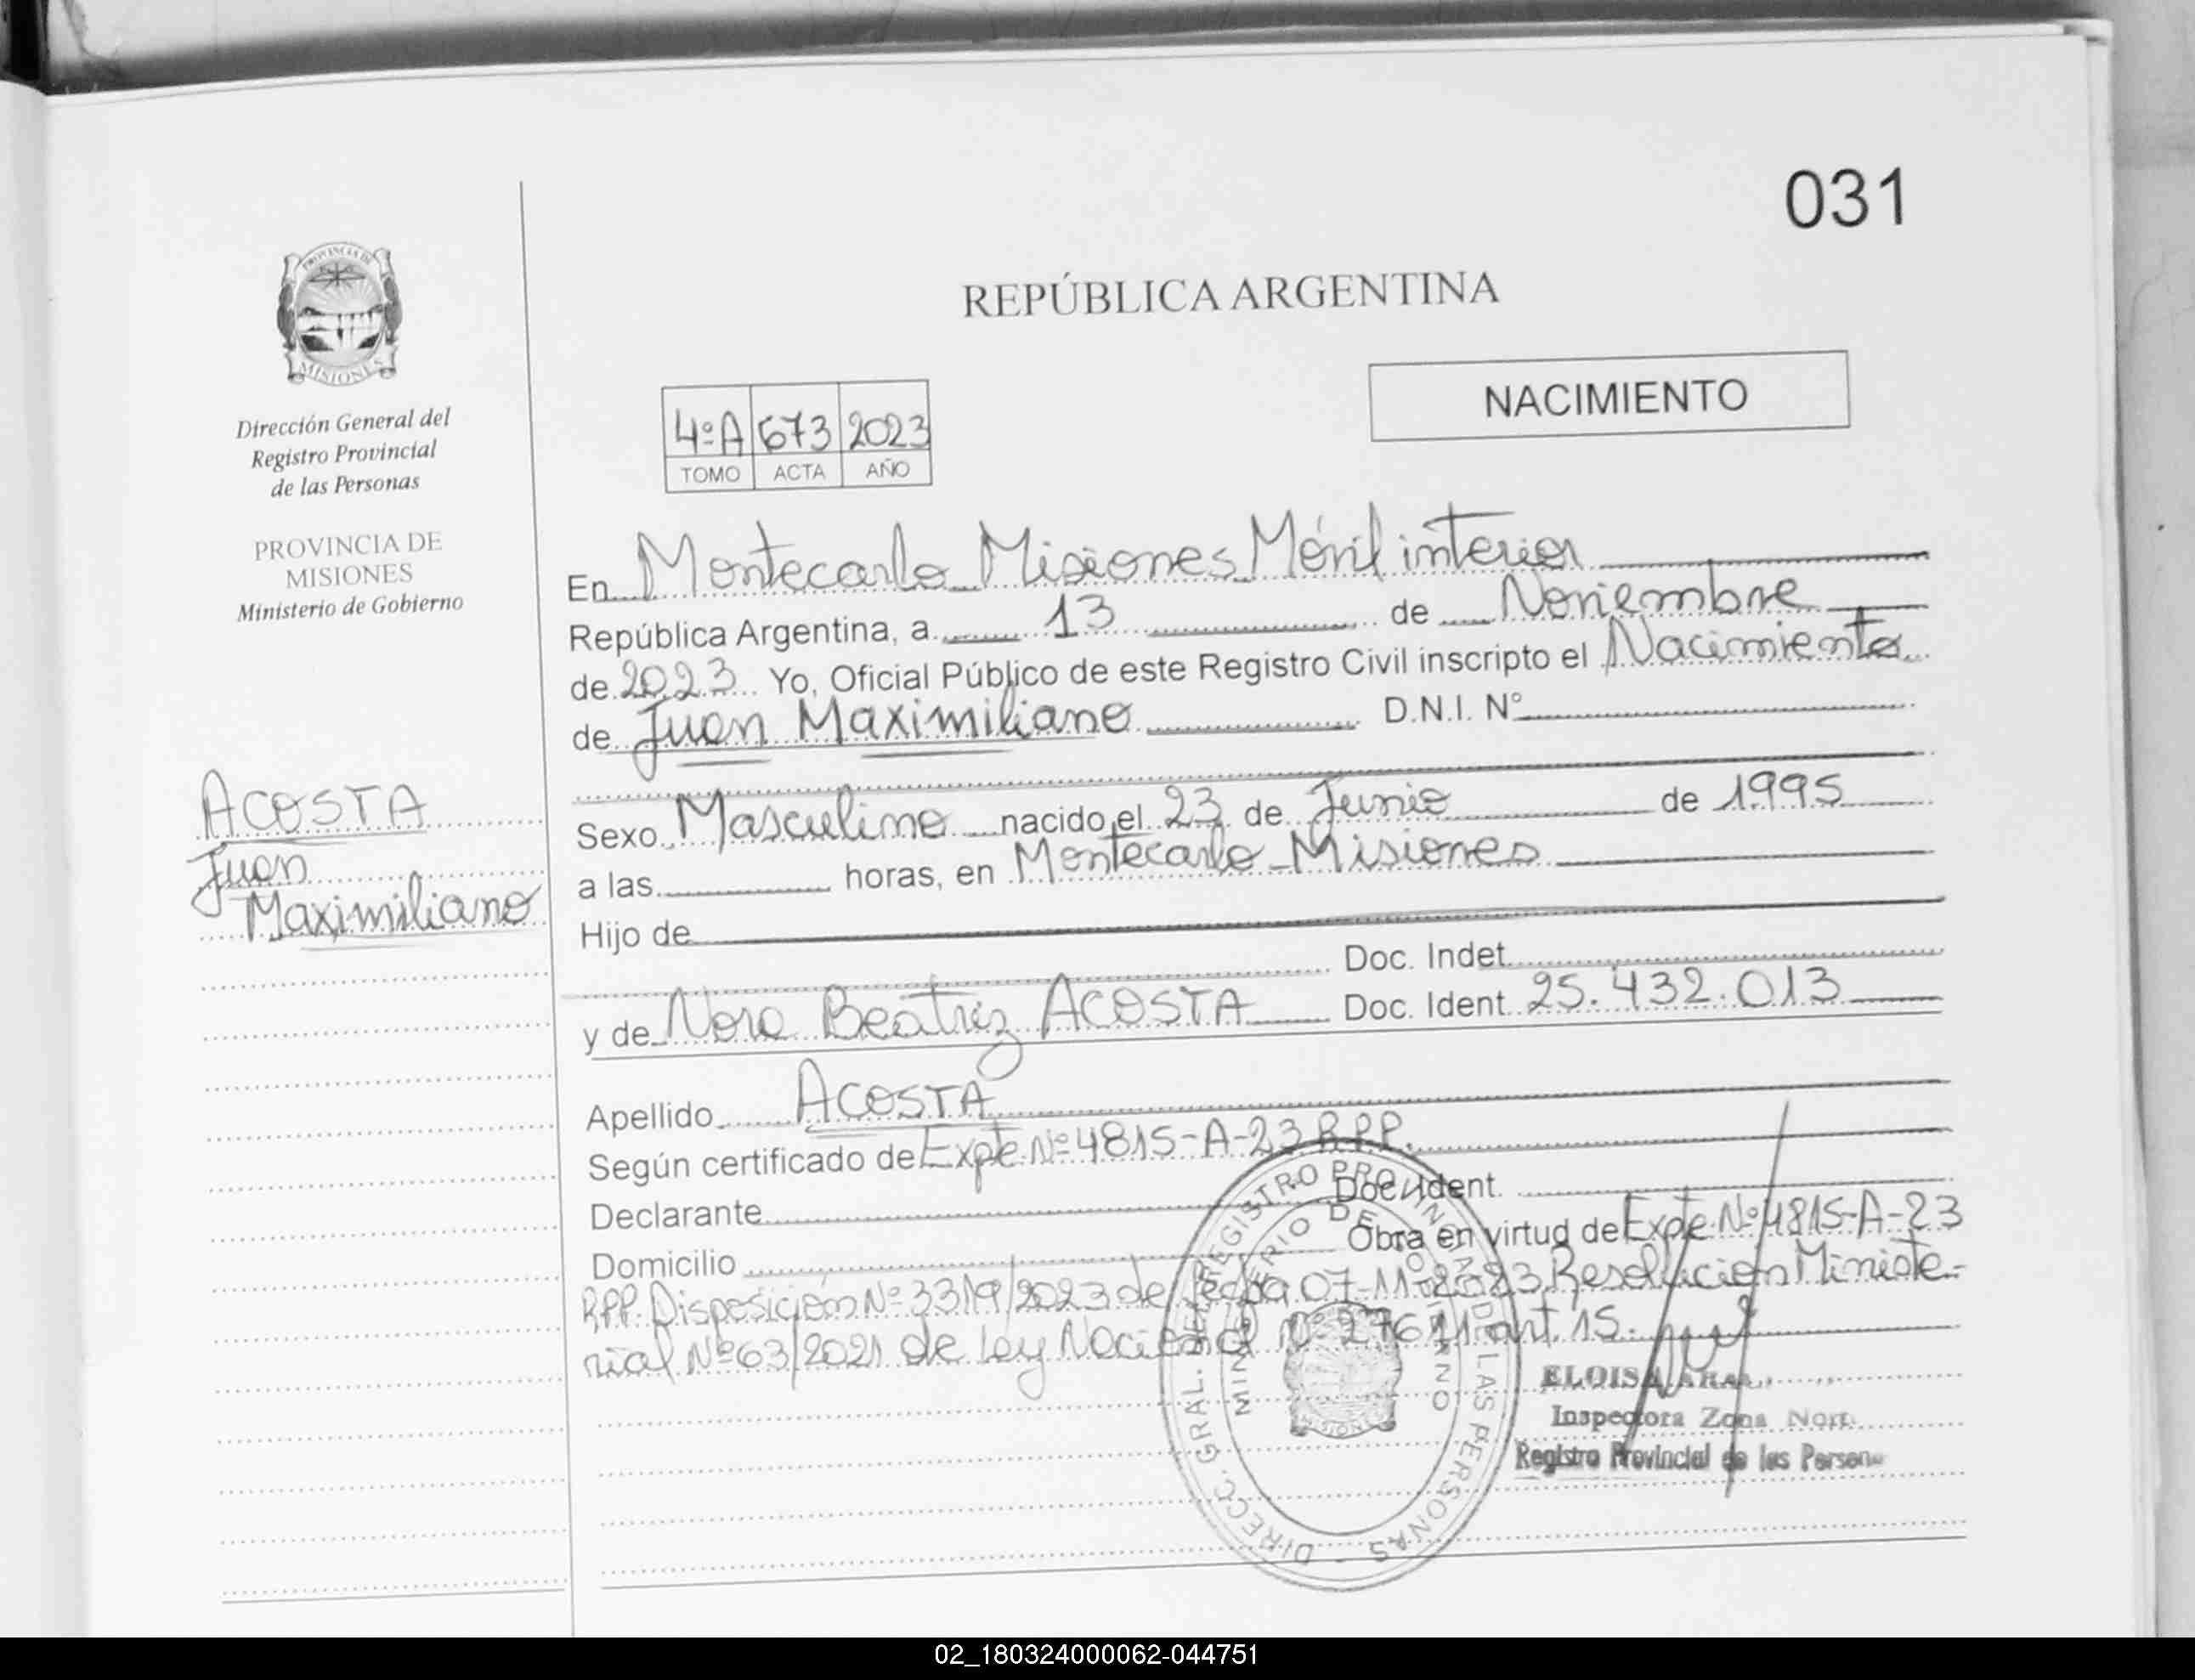 031
PROVINCIA DE
MISIONES
Dirección General del
Registro Provincial
de las Personas
PROVINCIA DE
MISIONES
Ministerio de Gobierno
ACOSTA
Juan
Maximiliano
REPÚBLICA ARGENTINA
NACIMIENTO
4ºA 673 2023
TOMO ACTA AÑO
En Montecarlo Misiones Móvil interior
República Argentina, a 13 de Noviembre
de 2023 Yo, Oficial Público de este Registro Civil inscripto el Nacimiento
de Juan Maximiliano D.N.I. Nº
Sexo Masculino nacido el 23 de Junio de 1995
a las horas, en Montecarlo - Misiones
Hijo de
Doc. Indet.
y de Nora Beatriz ACOSTA Doc. Ident. 25.432.013
Apellido ACOSTA
Según certificado de Expte Nº 4815-A-23 R.P.P.
Declarante Doc. Ident.
Domicilio Obra en virtud de Expte Nº 4815-A-23
RPP. Disposición Nº 3319/2023 de fecha 07-11-2023 Resolución Ministe-
rial Nº 63/2021 de Ley Nacional Nº 27611 art. 15.
DIRECC. GRAL. DEL REGISTRO PROVINCIAL DE LAS PERSONAS -
MINISTERIO DE GOBIERNO
MISIONES
ELOISA
Inspectora Zona Nort
Registro Provincial de las Persona
02_180324000062-044751